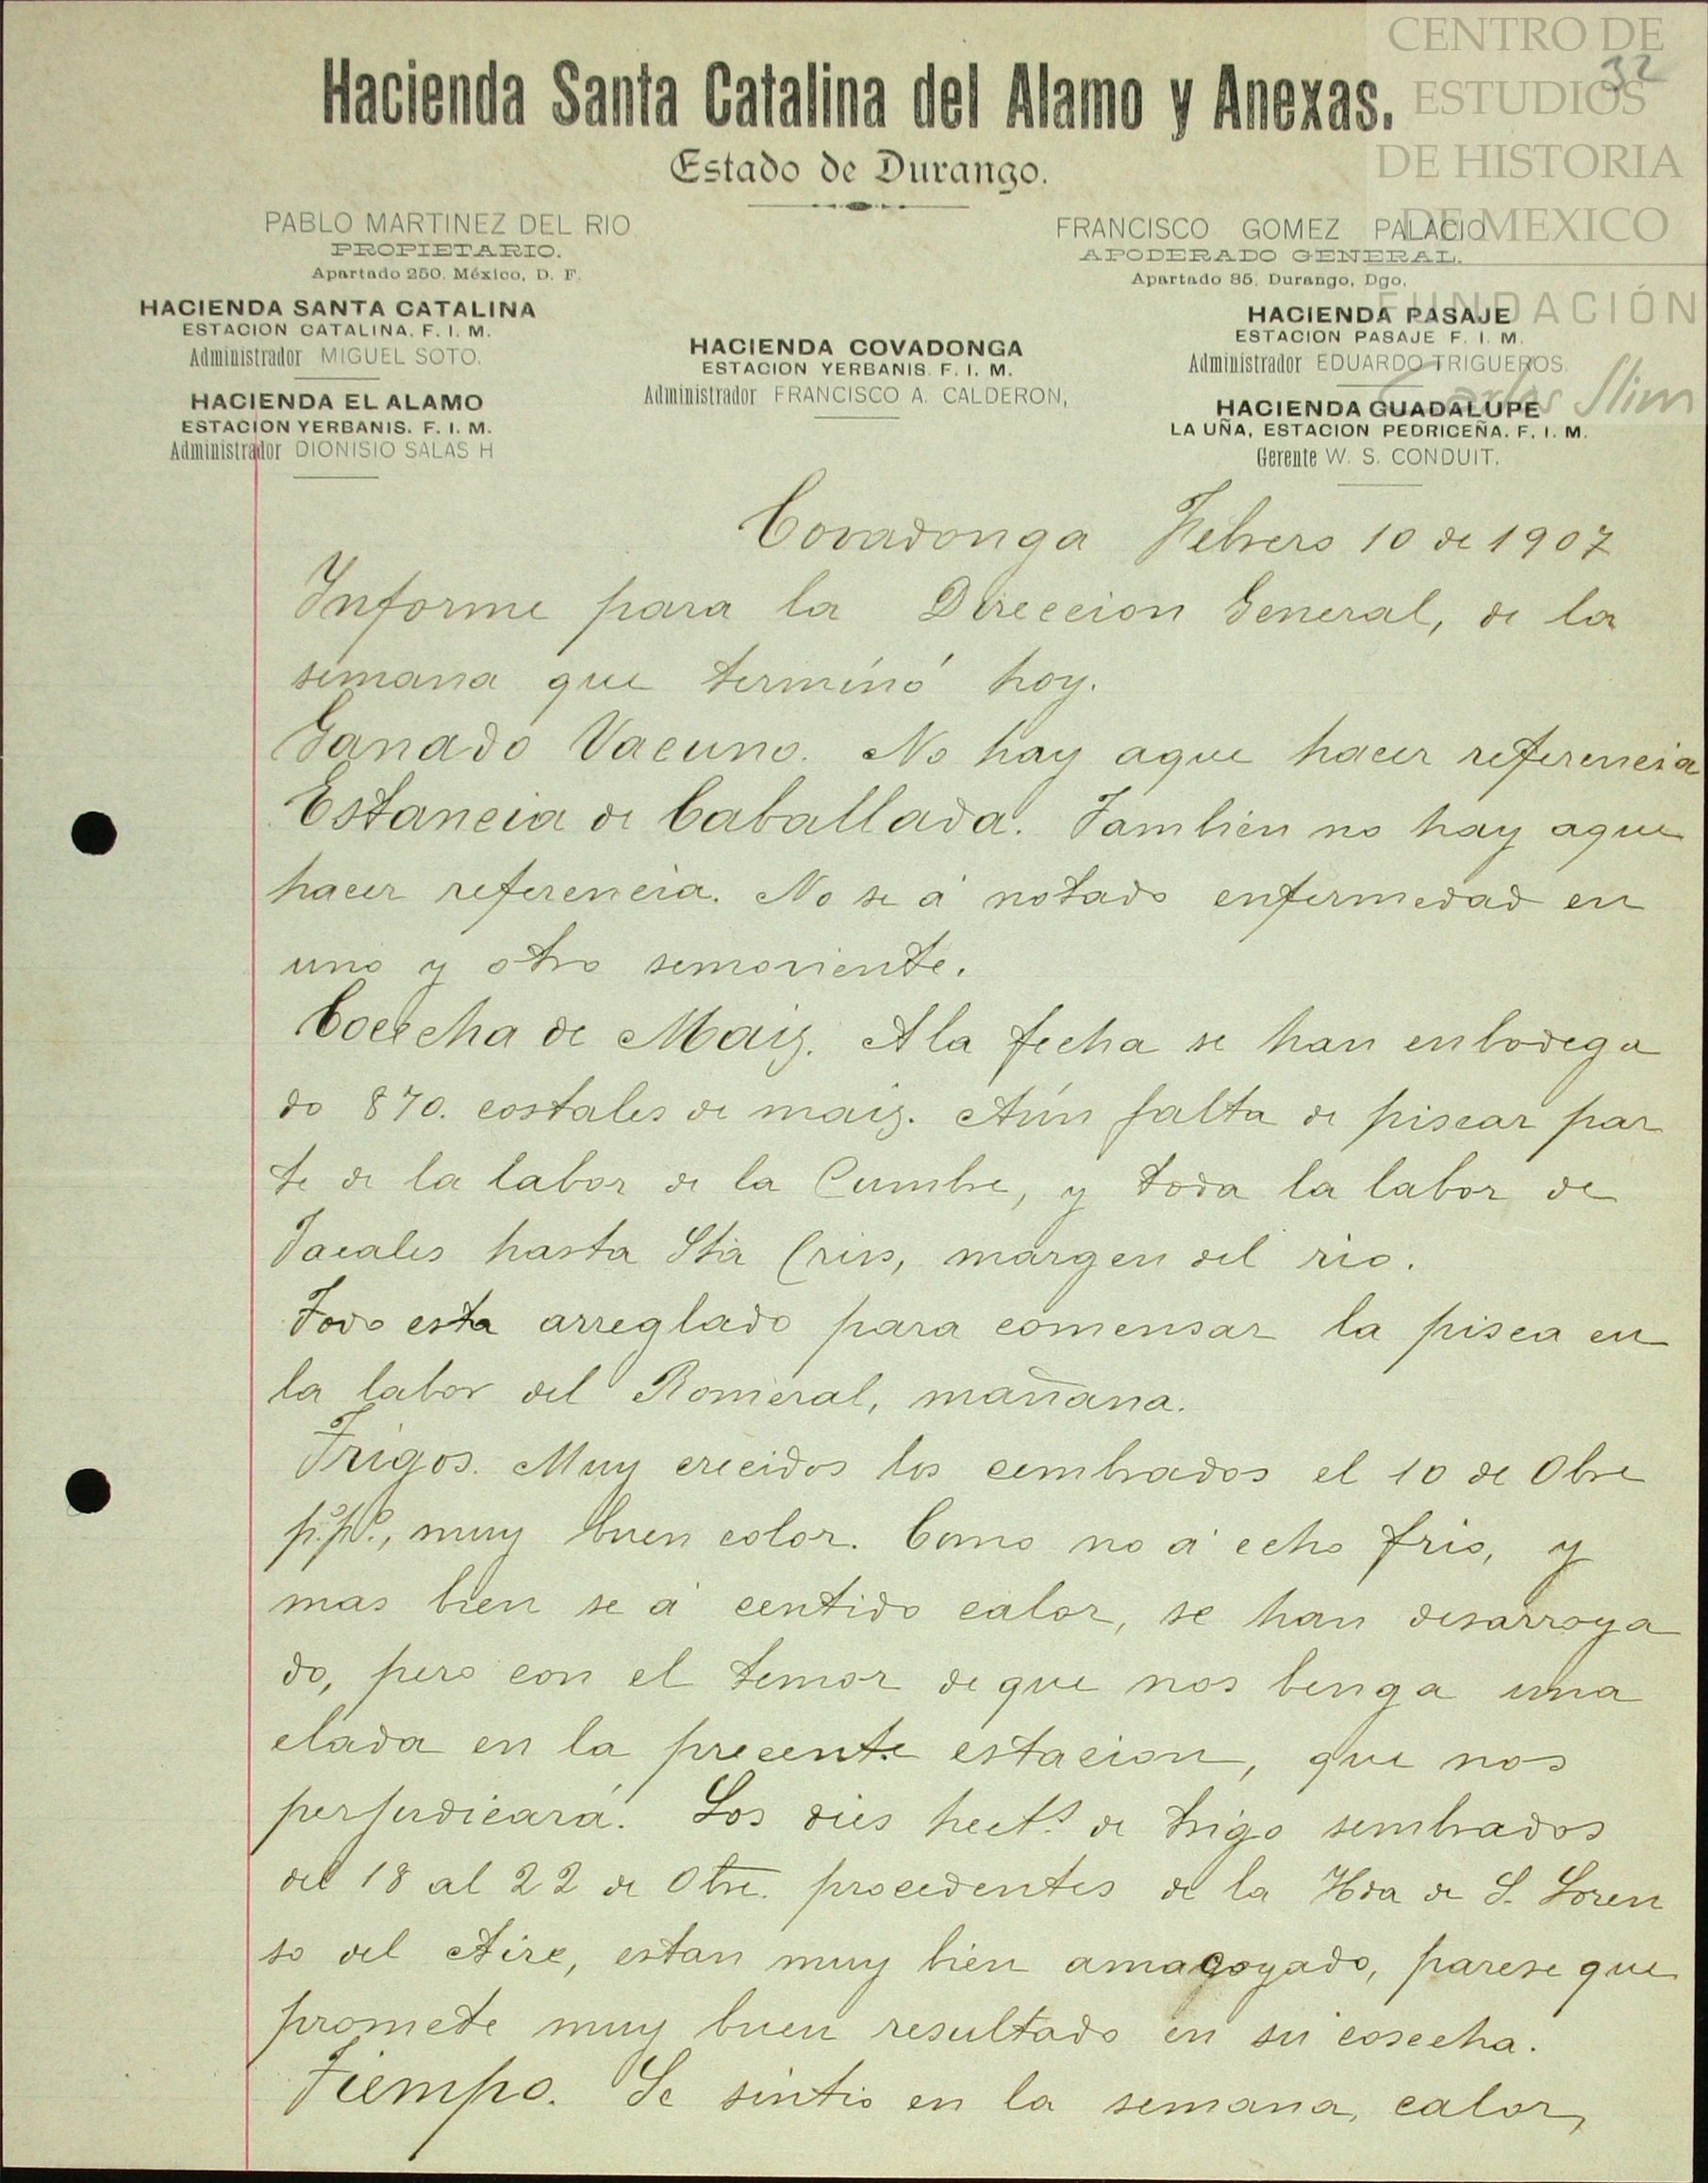 CENTRO DE
ESTUDIOS
DE HISTORIA
DE MEXICO
FUNDACIÓN
Carlos Slim
32
Hacienda Santa Catalina del Alamo y Anexas.
Estado de Durango.
PABLO MARTINEZ DEL RIO
PROPIETARIO.
Apartado 250. México, D. F.
FRANCISCO GOMEZ PALACIO
APODERADO GENERAL.
Apartado 85, Durango, Dgo.
HACIENDA SANTA CATALINA
ESTACION CATALINA. F. I. M.
Administrador MIGUEL SOTO.
HACIENDA EL ALAMO
ESTACION YERBANIS. F. I. M.
Administrador DIONISIO SALAS H
HACIENDA COVADONGA
ESTACION YERBANIS. F. I. M.
Administrador FRANCISCO A. CALDERON,
HACIENDA PASAJE
ESTACION PASAJE F. I. M.
Administrador EDUARDO TRIGUEROS.
HACIENDA GUADALUPE
LA UÑA, ESTACION PEDRICEÑA. F. I. M.
Gerente W. S. CONDUIT.
Covadonga Febrero 10 de 1907
Informe para la Direccion General, de la
semana que terminó hoy.
Ganado Vacuno. No hay aque hacer referencia
Estancia de Caballada. Tambien no hay aque
hacer referencia. No se á notado enfermedad en
uno y otro semoviente.
Cocecha de Maiz. A la fecha se han enbodega
do 870. costales de maiz. Aún falta de piscar par
te de la labor de la Cumbre, y toda la labor de
Jacales hasta Sta Cruz, margen del rio.
Todo esta arreglado para comensar la pisca en
la labor del Romeral, mañana.
Trigos. Muy crecidos los cembrados el 10 de Obre
p.º p.º, muy buen color. Como no á echo frio, y
mas bien se á centido calor, se han desarroya
do, pero con el temor de que nos benga una
elada en la precente estacion, que nos
perjudicará. Los dies hect.s de trigo sembrados
del 18 al 22 de Otre. procedentes de la Hda de S. Loren
so del Aire, estan muy bien amacoyado, parese que
promete muy buen resultado en su cosecha.
Tiempo. Se sintio en la semana, calor,